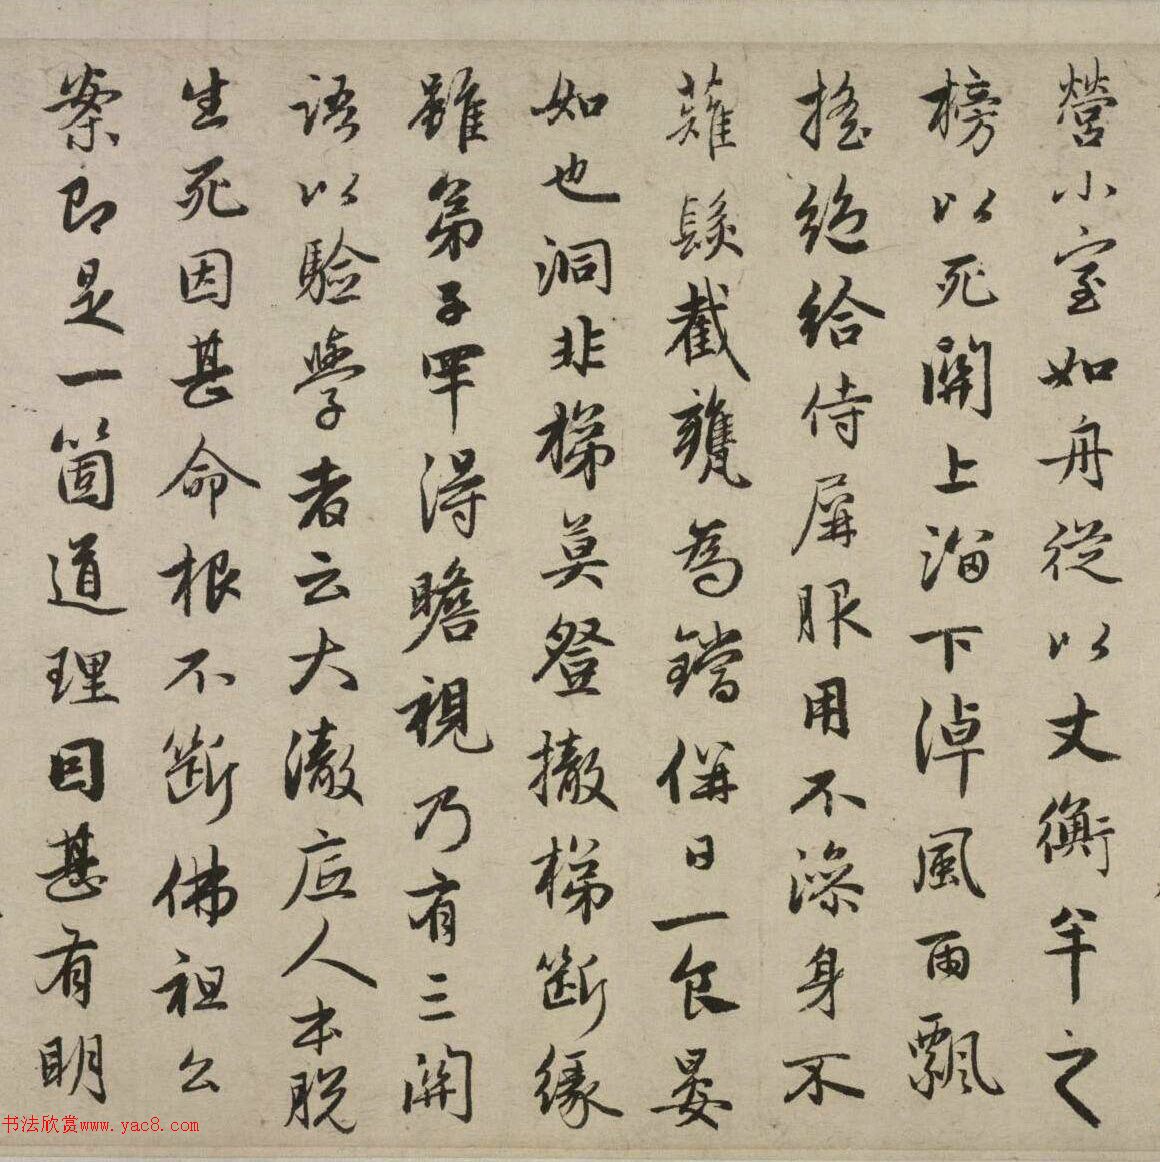 營小室如舟從以丈衡半之
榜以死關上溜下淖風雨飄
搖絶給侍屏服用不澡身不
薙髮截甕為鐺併日一食晏
如也洞非梯莫登撤梯斷緣
雖弟子罕得瞻視乃有三關
語以驗學者云大澈底人本脫
生死因甚命根不斷佛祖公
案即是一箇道理因甚有明
书法欣赏www.yac8.com